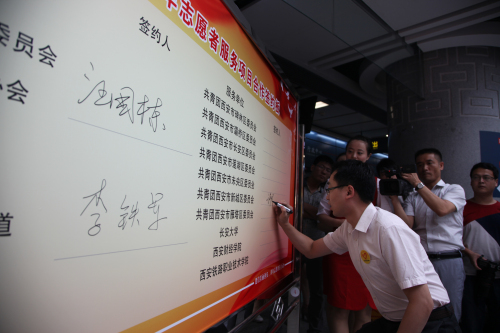 志愿者服务项目合作签约
委员会
会
道
签约人
汪国栋
李铁军
服务单位
共青团西安市碑林区委员会
共青团西安市灞桥区委员会
共青团西安市长安区委员会
共青团西安市莲湖区委员会
共青团西安市未央区委员会
共青团西安市新城区委员会
共青团西安市雁塔区委员会
长安大学
西安财经学院
西安铁路职业技术学院